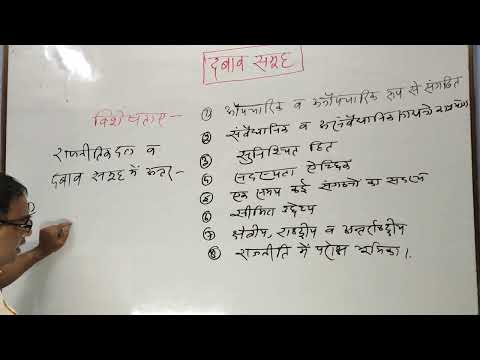 दबाव समूह
विशेषताए -
राजनीतिक दल व
दबाव समूह में अन्तर -
① औपचारिक व अनौपचारिक रूप से संगठित
② संवैधानिक व असंवैधानिक
③ सुनिश्चित हित
④ सदस्यता ऐच्छिक
⑤ एक समय कई संगठनो का सदस्य
⑥ सीमित उद्देश्य
⑦ क्षेत्रीय, राष्ट्रीय व अन्तर्राष्ट्रीय
⑧ राजनीति में परोक्ष भूमिका।